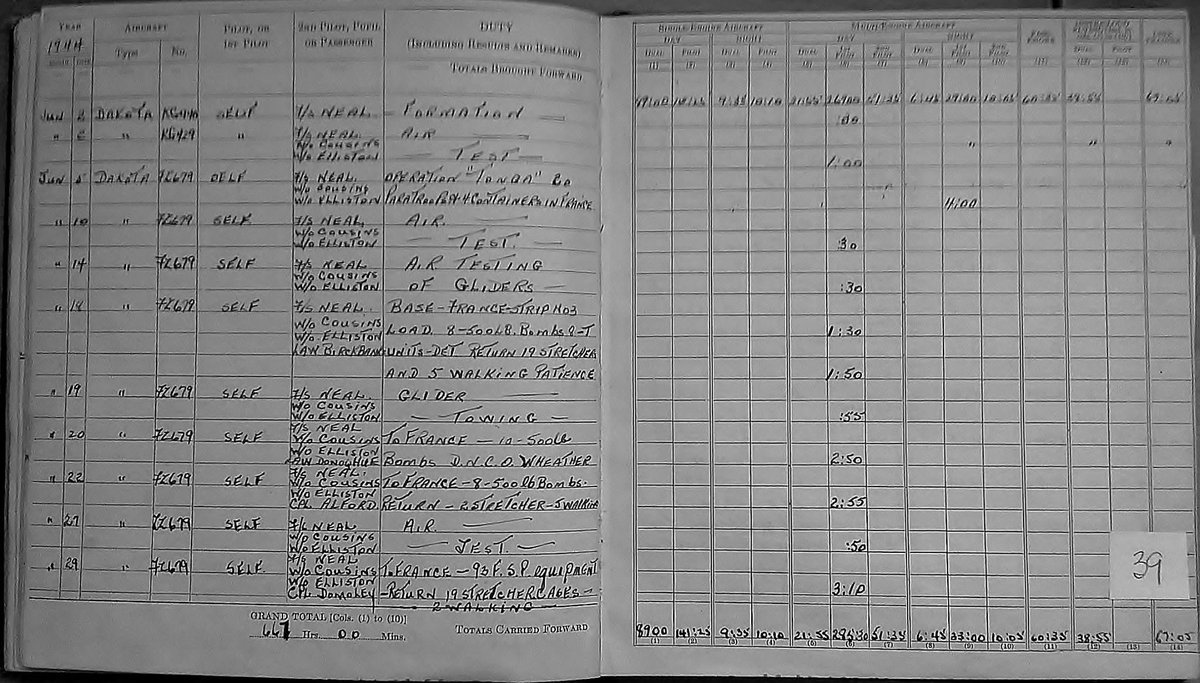 YEAR AIRCRAFT PILOT, OR 2ND PILOT, PUPIL DUTY
1944 Type No. 1ST PILOT OR PASSENGER (INCLUDING RESULTS AND REMARKS)
MONTH DATE
TOTALS BROUGHT FORWARD
JUN 2 DAKOTA SELF F/S NEAL. — FORMATION —
" " KG429 " F/S NEAL. AIR —
W/O COUSINS
W/O ELLISTON — TEST —
JUN 5 DAKOTA FZ679 SELF F/S NEAL. OPERATION "TONGA" 20
W/O COUSINS
W/O ELLISTON PARATROOPS & 4 CONTAINERS IN FRANCE
" 10 " FZ679 SELF F/S NEAL. AIR —
W/O COUSINS
W/O ELLISTON — TEST. —
" 14 " FZ679 SELF F/S NEAL AIR TESTING
W/O COUSINS
W/O ELLISTON OF GLIDERS —
" 18 " FZ679 SELF F/S NEAL. BASE - FRANCE - STRIP NO3
W/O COUSINS
W/O ELLISTON LOAD 8-500LB. BOMBS
LAW UNITS-DET RETURN 19 STRETCHER
AND 5 WALKING PATIENCE
" 19 " FZ679 SELF F/S NEAL. GLIDER —
W/O COUSINS
W/O ELLISTON — TOWING —
" 20 " FZ679 SELF F/S NEAL
W/O COUSINS TO FRANCE — 10-500LB
W/O ELLISTON
LAW DONOGHUE BOMBS D.N.C.O. WHEATHER
" 22 " FZ679 SELF F/S NEAL.
W/O COUSINS TO FRANCE - 8-500lb BOMBS.
W/O ELLISTON
CPL ALFORD RETURN - 2 STRETCHER - 5 WALKING
" 27 " FZ679 SELF NEAL AIR —
W/O COUSINS
W/O ELLISTON — TEST. —
" 29 " FZ679 SELF F/S NEAL
W/O COUSINS TO FRANCE - 93 F.S.P. EQUIPMENT
W/O ELLISTON
CPL - RETURN 19 STRETCHER CASES -
- 2 WALKING -
GRAND TOTAL [Cols. (1) to (10)]
667 Hrs. 00 Mins.
TOTALS CARRIED FORWARD
SINGLE-ENGINE AIRCRAFT MULTI-ENGINE AIRCRAFT
DAY NIGHT DAY NIGHT
DUAL PILOT DUAL PILOT DUAL 1ST PILOT 2ND PILOT DUAL 1ST PILOT 2ND PILOT DUAL PILOT
(1) (2) (3) (4) (5) (6) (7) (8) (9) (10) (11) (12) (13)
9:35 10:10 6:45 29:00 10:05 60:35 38:55 67:05
1:00
4:00
:30
:30
1:30
1:50
:55
2:50
2:55
:50
3:10
39
89:00 141:25 9:35 10:10 21:55 51:35 6:45 33:00 10:05 60:35 38:55 67:05
(1) (2) (3) (4) (5) (6) (7) (8) (9) (10) (11) (12) (13) (14)